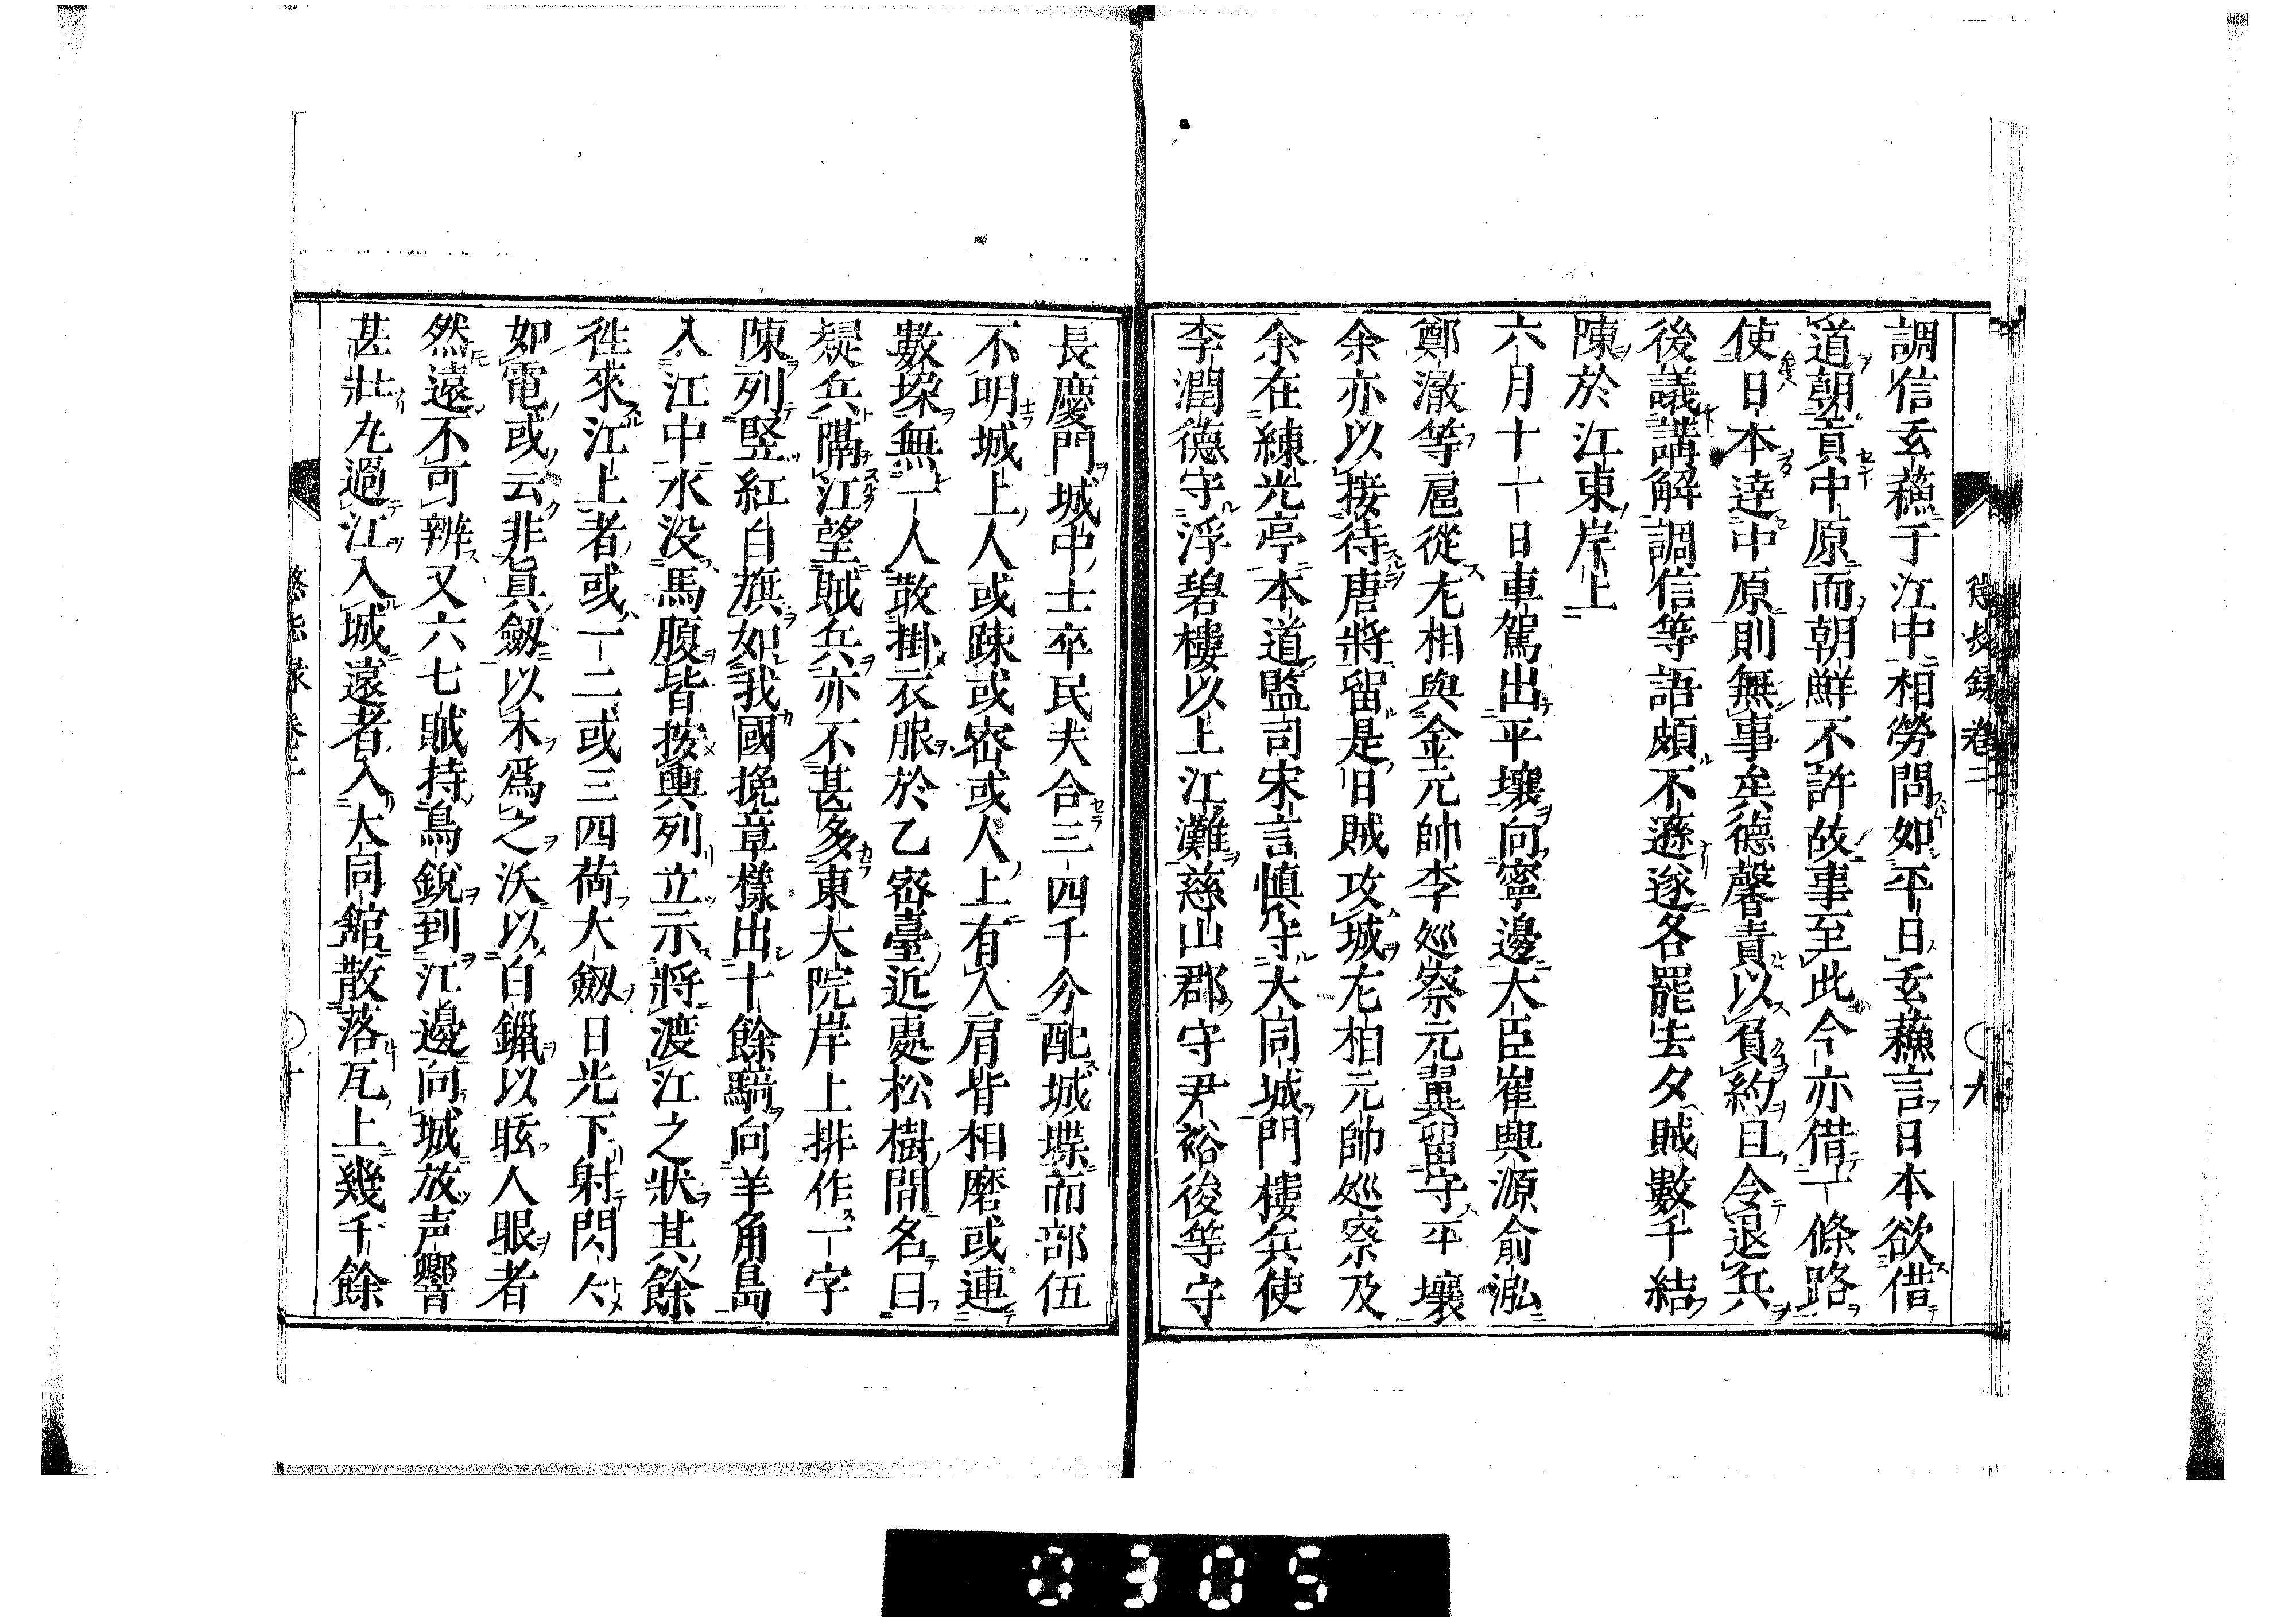 懲毖録 卷二 九
調信玄蘓于江中相勞問如平日玄蘓言日本欲借
道朝貢中原而朝鮮不許故事至此今亦借一條路
使日本達中原則無事矣德馨責以負約且令退兵
後議講解調信等語頗不遜遂各罷去夕賊數千結
陳於江東岸上
六月十一日車駕出平壤向寧邊大臣崔興源俞泓
鄭澈等扈從左相與金元帥李巡察元翼留守平壤
余亦以接待唐將留是日賊攻城左相元帥巡察及
余在練光亭本道監司宋言慎守大同城門樓兵使
李潤德守浮碧樓以上江灘慈山郡守尹裕後等守
長慶門城中士卒民夫合三四千分配城堞而部伍
不明城上人或踈或密或人上有人肩背相磨或連
數垜無一人散掛衣服於乙密臺近處松樹間名曰
疑兵隔江望賊兵亦不甚多東大院岸上排作一字
陳列竪紅白旗如我國挽章樣出十餘騎向羊角島
入江中水沒馬腹皆按轡列立示將渡江之狀其餘
徃來江上者或一二或三四荷大劔日光下射閃々
如電或云非眞劔以木爲之沃以白鑞以眩人眼者
然遠不可辨又六七賊持鳥銃到江邊向城放声響
甚壯丸過江入城遠者入大同館散落瓦上幾千餘
懲毖録 卷二 十
0305